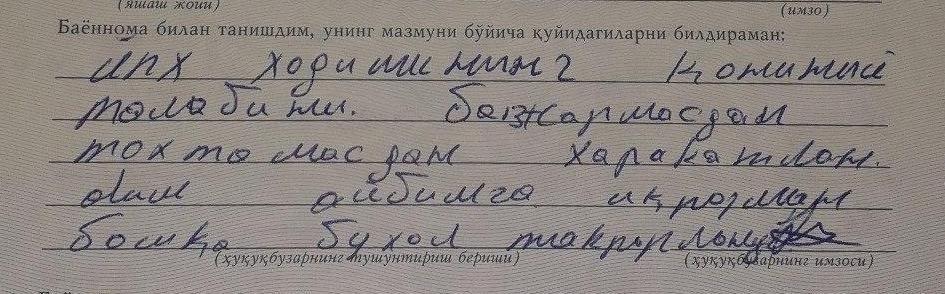 (яшаш жойи) (имзо)
Баённома билан танишдим, унинг мазмуни бўйича қуйидагиларни билдираман:
йпх ходимининг қонуний
талабини. бажармасдан
тохтамасдан харакатлан.
дим айбимга иқрорман
бошқа бу хол такрорланму
(ҳуқуқбузарнинг тушунтириш бериши) (ҳуқуқбузарнинг имзоси)